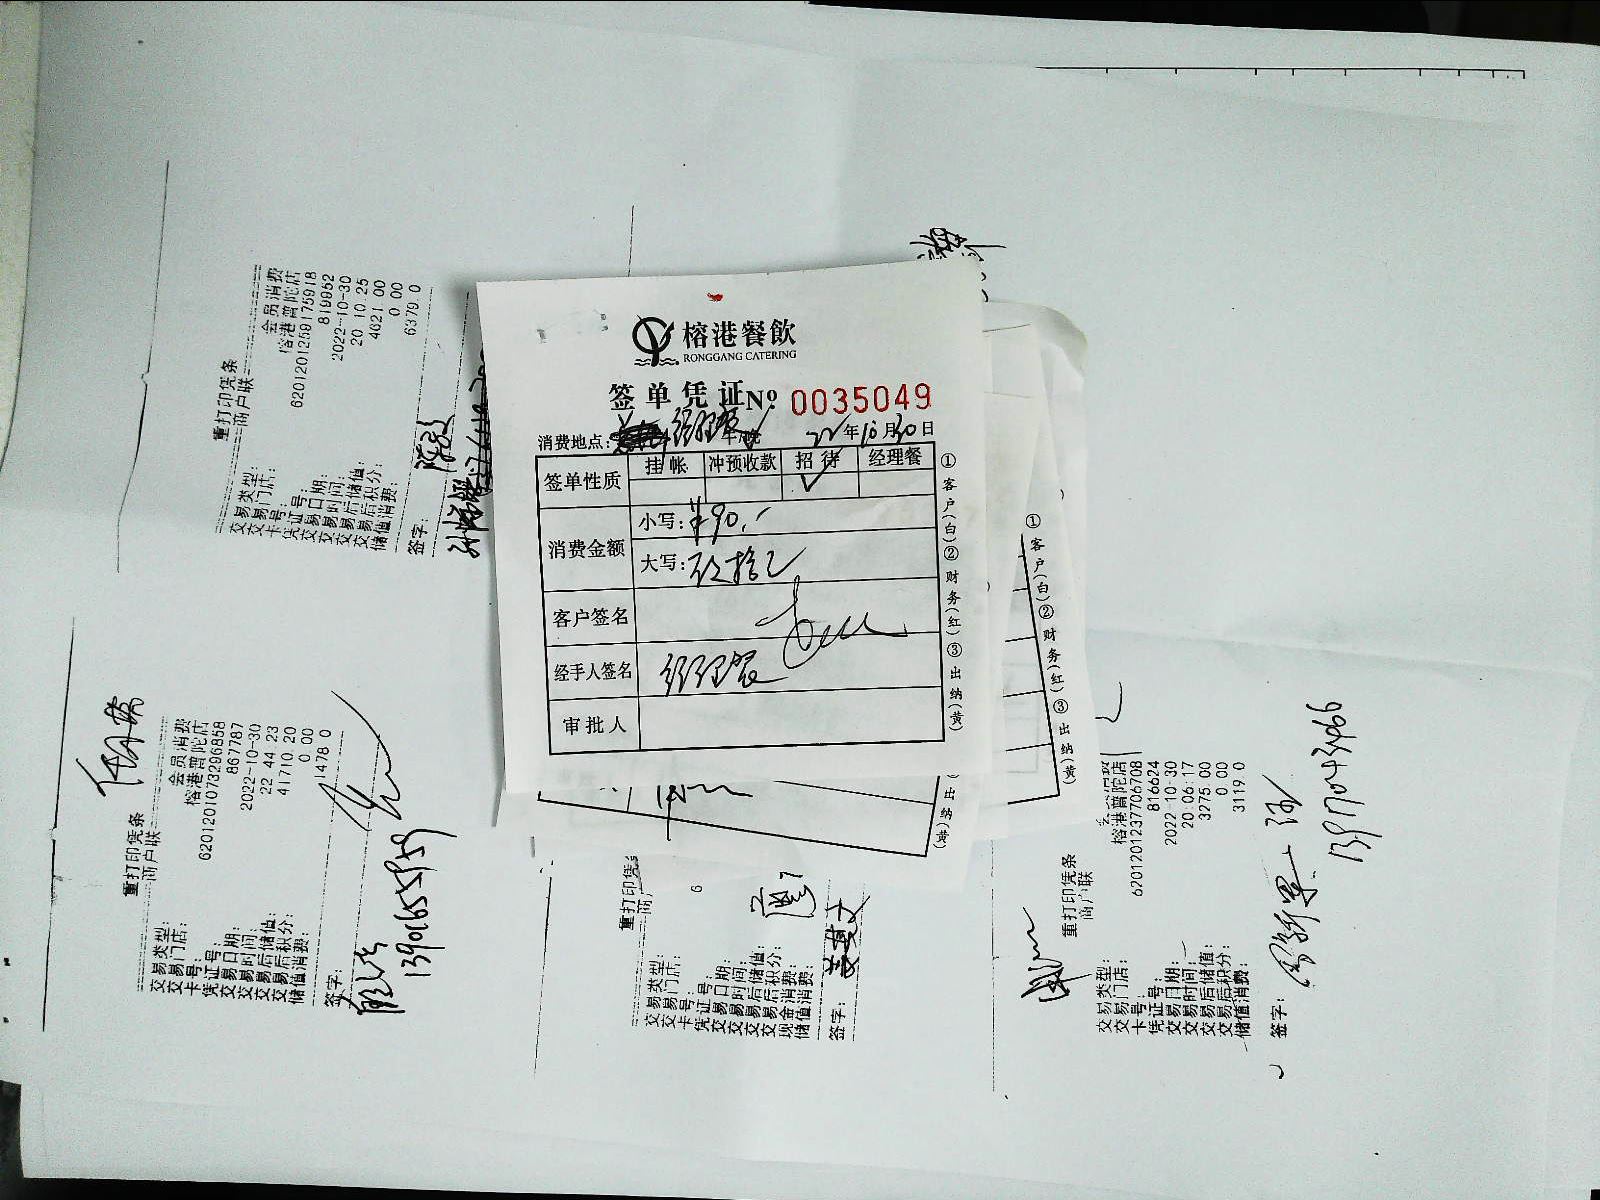 榕港餐飲
RONGGANG CATERING
签单凭证 Nº 0035049
消费地点: 经理餐 午/晚 22年10月30日
签单性质 挂帐 冲预收款 招待 经理餐
✓
消费金额 小写: ¥90.-
大写: 玖拾元
客户签名
经手人签名 经理餐
审批人
①客户(白)②财务(红)③出纳(黄)
①客户(白)②财务(红)③出纳(黄)
重打印凭条
商户联
交易类型: 会员消费
交易门店: 榕港普陀店
卡号: 6201201259175918
凭证号: 819952
交易日期: 2022-10-30
交易时间: 20 10 25
交易后储值: 4021.00
交易后积分: 0 00
储值消费: 6379.0
签字:
重打印凭条
商户联
交易类型: 会员消费
交易门店: 榕港普陀店
卡号: 6201201073296858
凭证号: 867787
交易日期: 2022-10-30
交易时间: 22 44 23
交易后储值: 41710.20
交易后积分: 0 00
储值消费: 1478 0
签字:
13901655959
重打印凭
商户
交易类型:
交易门店:
卡号: 6
凭证号:
交易日期:
交易时间:
交易后储值:
交易后积分:
现金消费:
储值消费:
签字:
重打印凭条
商户联
交易类型:
交易门店: 榕港普陀店
卡号: 6201201237706708
凭证号: 816624
交易日期: 2022-10-30
交易时间: 20 06:17
交易后储值: 3275 00
交易后积分: 0 00
储值消费: 3119.0
签字:
13917043966